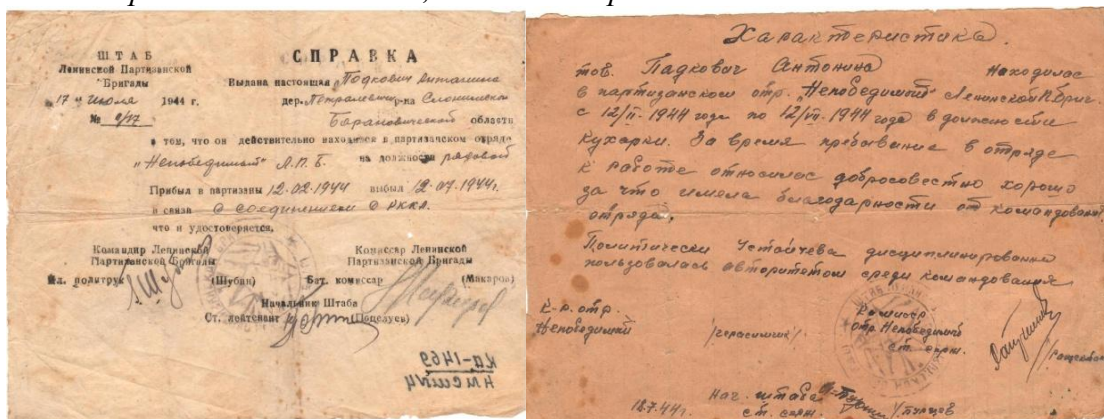 ШТАБ
Ленинской Партизанской
Бригады
"17" июля 1944 г.
№ 2/17
СПРАВКА
Выдана настоящая Подкович Антонина
дер. р-на Слонимского
Барановической области
в том, что он действительно находился в партизанском отряде
"Непобедимый" Л.П.Б. на должности рядовой
Прибыл в партизаны 12.02.1944 выбыл 12.07.1944г.
в связи с соединением с РККА.
что и удостоверяется.
Командир Ленинской
Партизанской Бригады
Мл. политрук (Шубин)
Комиссар Ленинской
Партизанской Бригады
Бат. комиссар (Макаров)
Начальник Штаба
Ст. лейтенант (Поцелуев)
КП-1469
Характеристика
тов. Падкович Антонина находилас
в партизанском отр. "Непобедимый" Ленинской П.Бриг.
с 12/II-1944 года по 12/VII-1944 года в должности
кухарки. За время пребывание в отряде
к работе относилас добросовестно хорошо
за что имела благодарности от командован
отряда.
Политически устойчева дисциплинирована
пользовалась авторитетом среди командования
К-р. отр.
Непобедимый /герасимчик/
Комиссар
отр. Непобедимый
ст. серж.
Нач. штаба
18.7.44г. ст. серж.